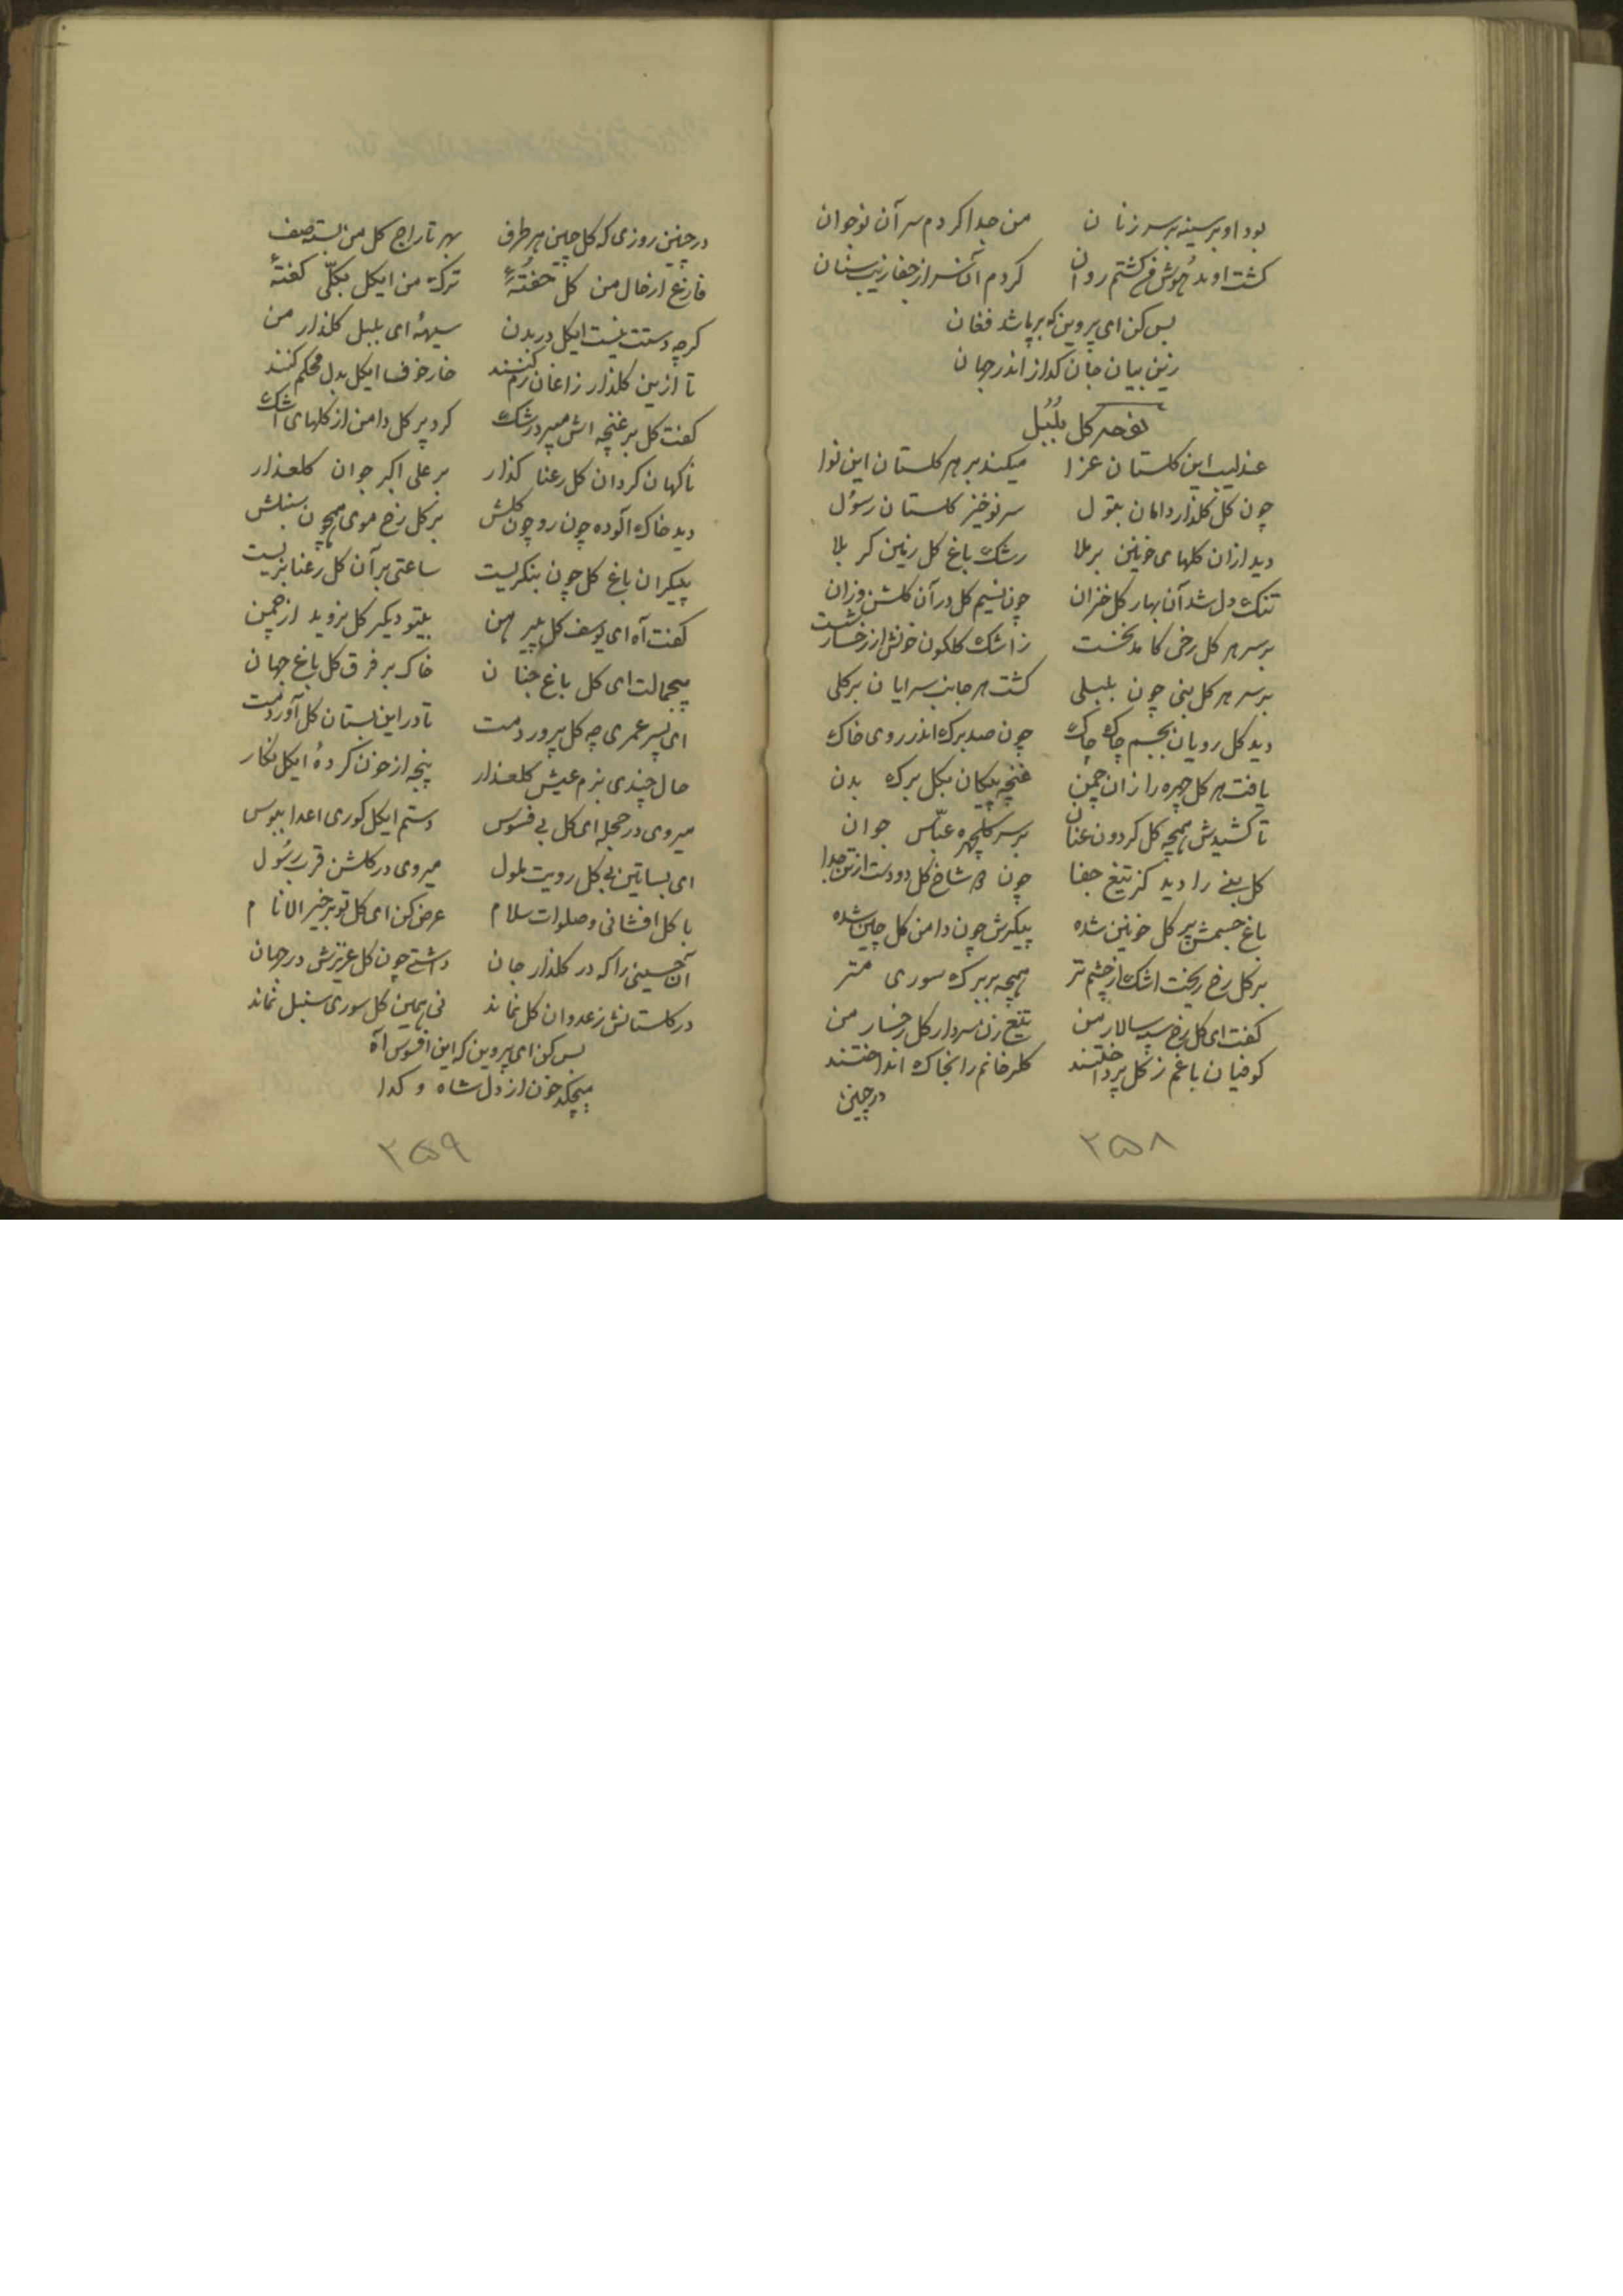 بود او بر سینه بر سر زنان من جدا کردم سر آن نوجوان
کشت او بدهوش من کشتم روان کردم آن سر از جفا زیب سنان
بس کن ای پروین که برپا شد فغان
زین بیان جان کداز اندر جهان
نوحه کل بلبل
عندلیب این کلستان عزا میکند بر هر کلستان این نوا
چون کل کلذار دامان بتول سر نوخیز کلستان رسول
دید ازان کلهای خونین برملا رشک باغ کل زمین کربلا
تنک دل شد آن بهار کل خزان چون نسیم کل در آن کلشن وزان
بر سر هر کل رخی کامد نخست ز اشک کلکون خونش از رخسار شست
بر سر هر کل بنی چون بلبلی کشت هر جانب سرایان بر کلی
دید کل رویان بجسم چاک چاک چون صد برک اندر روی خاک
یافت هر کل چهره را زان چمن غنچه پیکان بکل برک بدن
تا کشیدش همچه کل کردون عنان بر سر کلچهره عباس جوان
کل بنی را دید کز تیغ جفا چون شاخ کل دو دست از تن جدا
باغ جسمش پر کل خونین شده پیکرش چون دامن کل چین شده
بر کل رخ ریخت اشک از چشم تر همچه بر برک سوری
کفت ای کل رخ سپه سالار من تیغ زن سردار کل رخسار من
کوفیان باغم ز کل پرداختند کلرخانم را بخاک انداختند
در چنین
۲۵۸
در چنین روزی که کل چین هر طرف بهر تاراج کل من بسته صف
فارغ از حال من کل خفتهٔ ترک من ایکل بکلی کفتهٔ
کرچه دستت نیست ایکل در بدن ای بلبل کلذار من
تا ازین کلذار زاغان رم کنند خار خوف ایکل بدل محکم کنند
کفت کل بر غنچه اش رشک کرد پر کل دامن از کلهای اشک
ناکهان کرد ان کل رعنا کذار بر علی اکبر جوان کلعذار
دید خاک آلوده چون رو چون کلش بر کل رخ موی همچون سنبلش
پیکر ان باغ کل چون بنکریست ساعتی بر آن کل رعنا کریست
کفت آه ای یوسف کل پیرهن بیتو دیکر کل نروید از چمن
بیجمالت ای کل باغ جنان خاک بر فرق کل باغ جهان
ای پسر عمری چه کل پروردمت تا در این بستان کل آوردمت
حال چندی بزم عیش کلعذار پنجه از خون کردهٔ ایکل نکار
میروی در حجله ای کل بی فسوس دستم ایکل کوری اعدا ببوس
ای بساتین بی کل رویت ملول میروی در کلشن قرب رسول
با کل افشانی و صلوات سلام عرض کن ای کل تو بر خیر الانام
آن حسینی را که در کلذار جان داشتی چون کل عزیزش در جهان
در کلستانش ز عدوان کل نماند نی همین کل سوری سنبل نماند
بس کن ای پروین که این افسوس آه
میچکد خون از دل شاه و کدا
۲۵۹